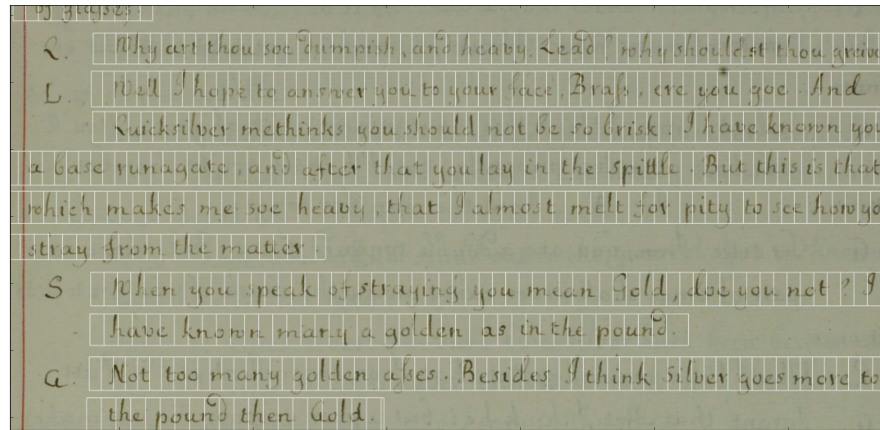 of glasses.
Q. Why art thou soe dumpish, and heavy Lead? why shouldst thou greive
L. Well I hope to answer you to your face, Brass, ere you goe. And
Quicksilver methinks you should not be so brisk. I have known you
a base runagate, and after that you lay in the spittle. But this is that
which makes me soe heavy, that I almost melt for pity to see how yo
stray from the matter.
S When you speak of straying you mean Gold, doe you not? I
have known many a golden as in the pound.
G. Not too many golden asses. Besides I think silver goes more to
the pound then Gold.